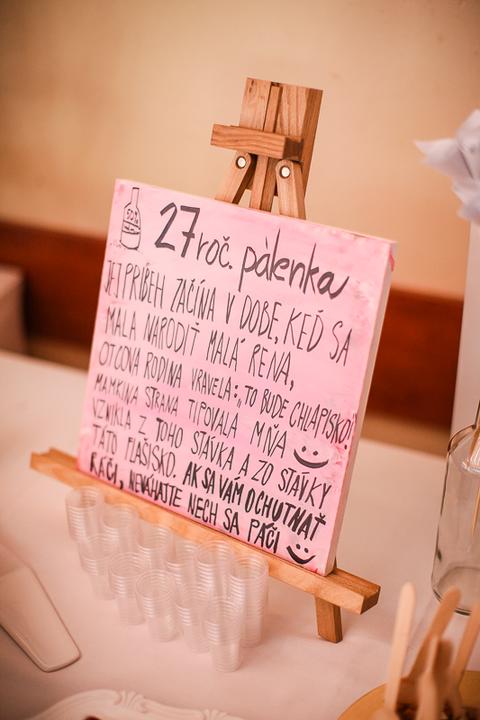 50%
27 roč. pálenka
JEJ PRÍBEH ZAČÍNA V DOBE, KEĎ SA
MALA NARODIŤ MALÁ RENA,
OTCOVA RODINA VRAVELA: „TO BUDE CHLAPISKO!
MAMKINA STRANA TIPOVALA MŇA
VZNIKLA Z TOHO STÁVKA A ZO STÁVKY
TÁTO FLAŠISKO. AK SA VÁM OCHUTNAŤ
RÁČI, NEVÁHAJTE NECH SA PÁČI